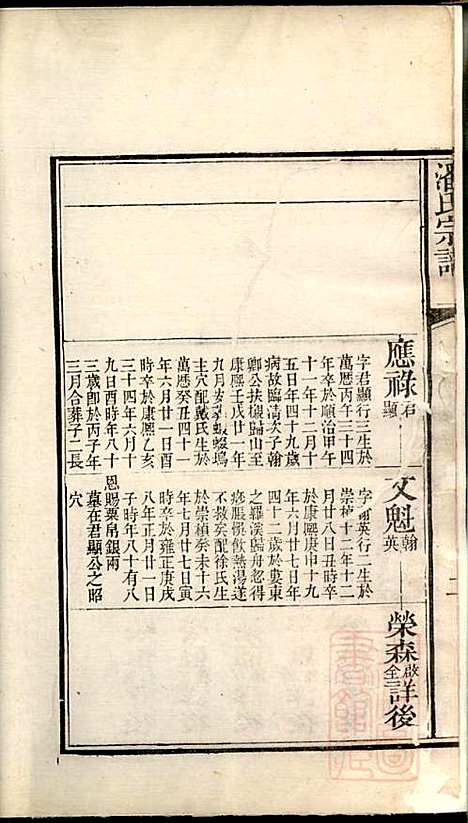 潘氏宗譜
應祿 君顯
字君顯行三生於
萬曆丙午三十四
年卒於順治甲午
十一年十二月十
五日年四十九歲
病故臨清次子翰
卿公扶櫬歸山至
康熙壬戌廿一年
九月安葬
主穴配戴氏生於
萬曆癸丑四十一
年六月廿一日酉
時卒於康熙乙亥
三十四年六月十
九日酉時年八十
三歲即於丙子年
三月合葬子二長
文魁 翰英
字翰英行二生於
崇禎十二年十二
月廿八日丑時卒
於康熙庚申十九
年六月廿七日年
四十二歲於婁東
之羅漢歸舟忽得
痧脹惧飲熱湯遂
不救矣配徐氏生
於崇禎癸未十六
年七月廿七日寅
時卒於雍正庚戌
八年正月廿一日
子時年八十有八
恩賜粟帛銀兩
墓在君顯公之昭
穴
榮森 啟全 三詳後
二